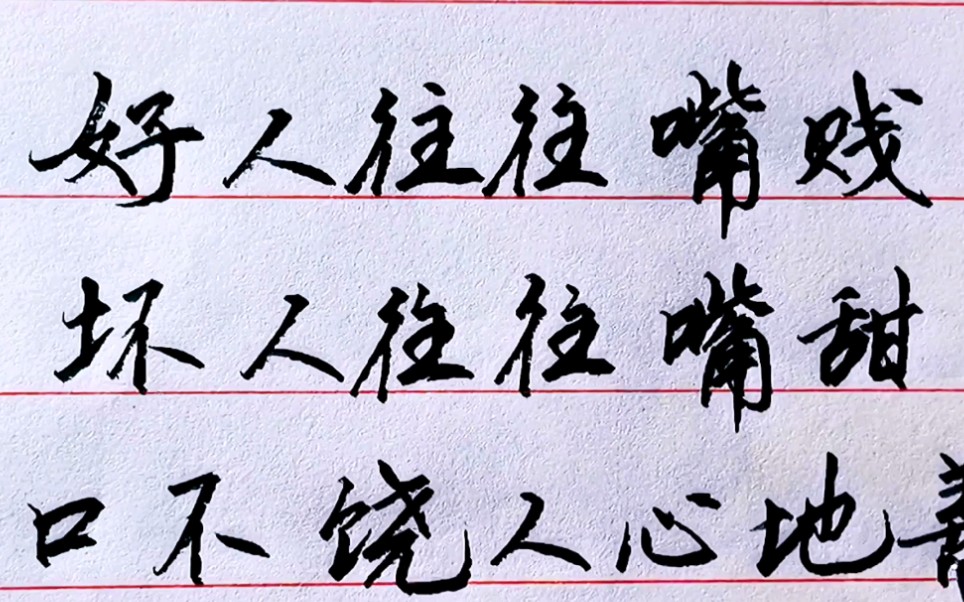 好人往往嘴贱
坏人往往嘴甜
口不饶人心地善